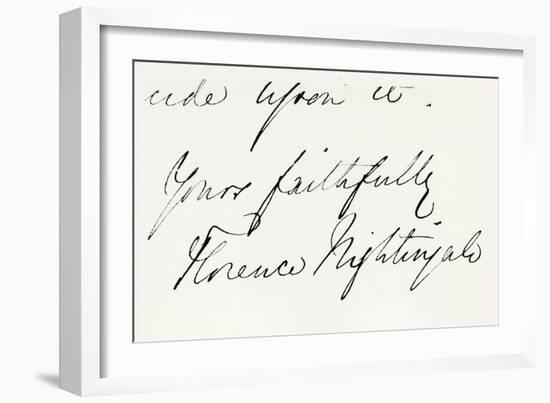 ide upon it.
Yours faithfully
Florence Nightingale